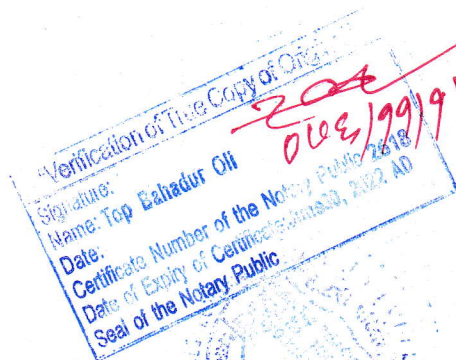 "Verification of True Copy of
Signature:
Name: Top Bahadur Oli
Date:
Certificate Number of the Notary Public 2618
Date of Expiry of Certificate: 2022 AD
Seal of the Notary Public